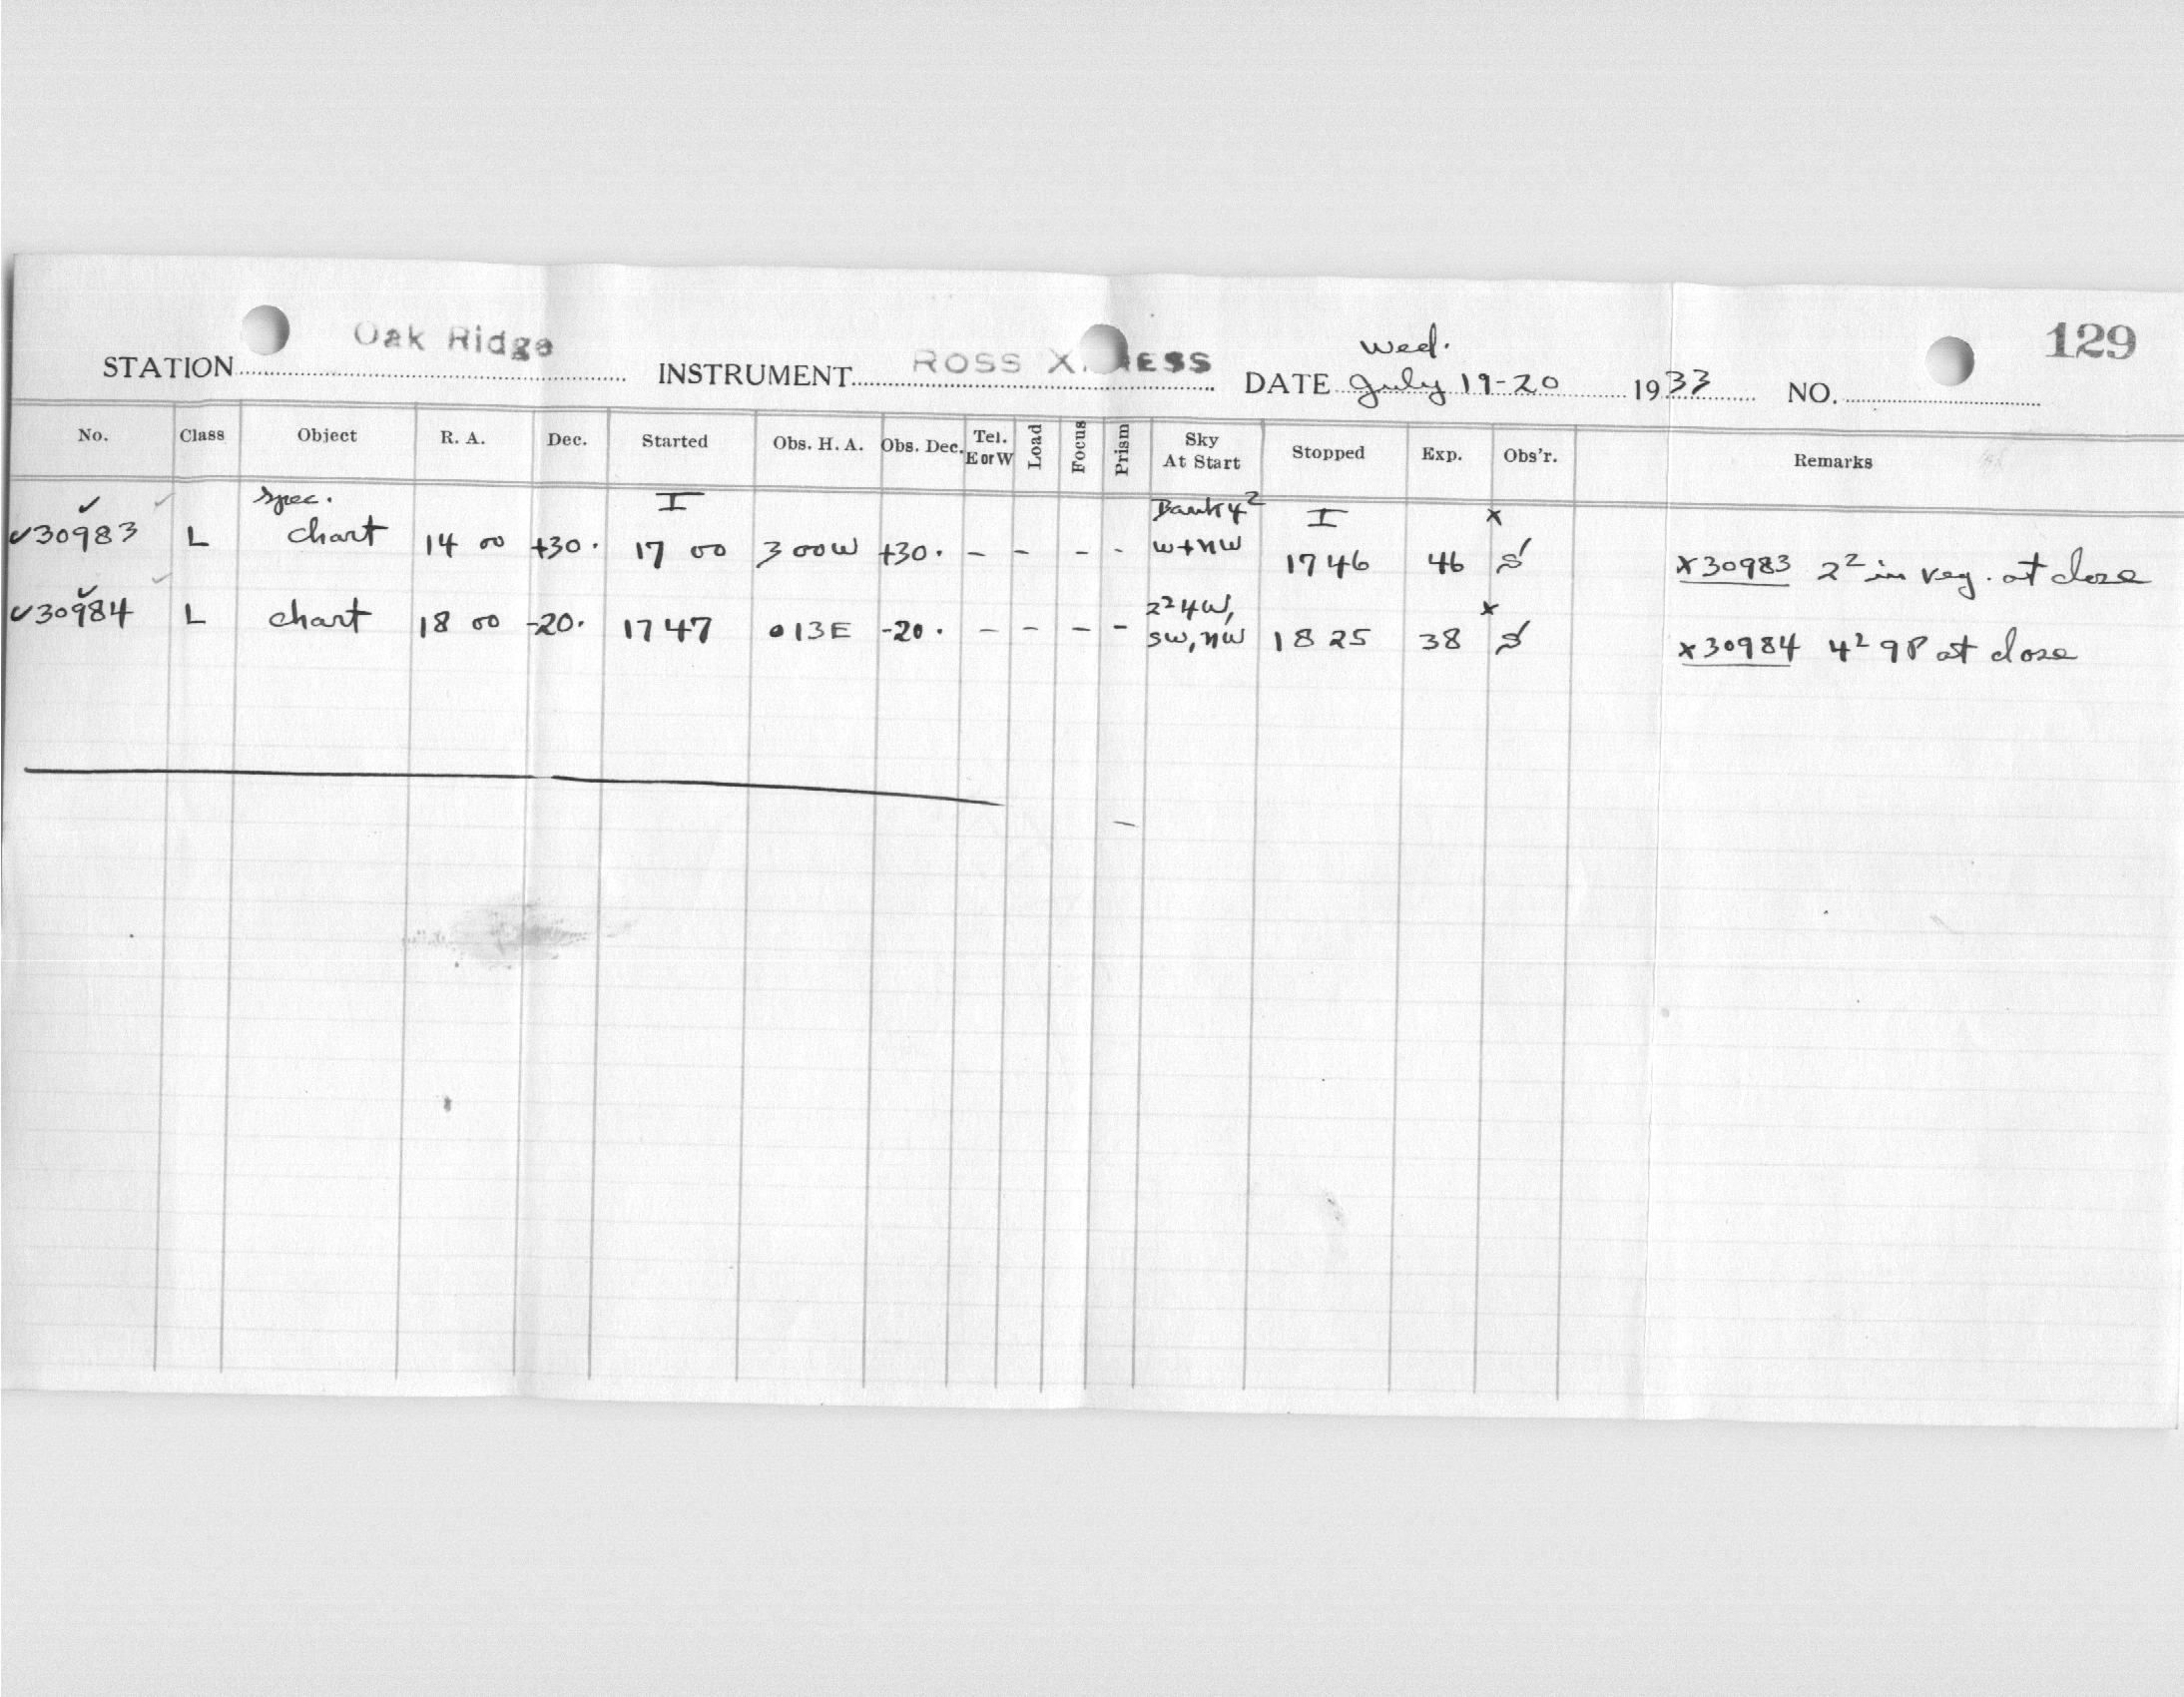 129
Wed.
STATION Oak Ridge INSTRUMENT ROSS X ESS DATE July 19-20 1933 NO.
No. Class Object R. A. Dec. Started Obs. H. A. Obs. Dec. Tel. E or W Load Focus Prism Sky At Start Stopped Exp. Obs'r. Remarks
spec. I Bank 4² I x
✓30983 L chart 14 00 +30. 17 00 3 00W +30. - - - - W+NW 17 46 46 S x30983 2² in reg. at close
2²4W, x
✓30984 L chart 18 00 -20. 17 47 0 13E -20. - - - - SW, NW 18 25 38 S x30984 4² 9P at close